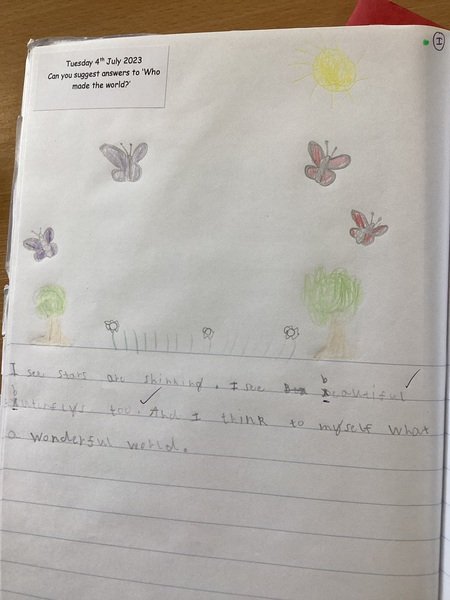 Tuesday 4th July 2023
Can you suggest answers to 'Who
made the world?'
I
I see stars are shinking. I see b
eautiful
butterflys too. And I think to myself what
a wonderful world.